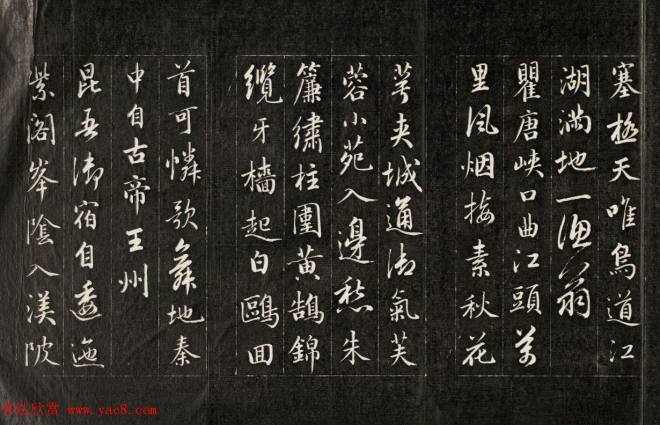 塞極天唯鳥道江
湖滿地一漁翁
瞿唐峽口曲江頭萬
里風烟接素秋花
萼夹城通御氣芙
蓉小苑入邊愁朱
簾繡柱圍黃鵠錦
纜牙檣起白鷗回
首可憐歌舞地秦
中自古帝王州
昆吾御宿自逶迤
紫閣峯陰入渼陂
书法欣赏 www.yac8.com